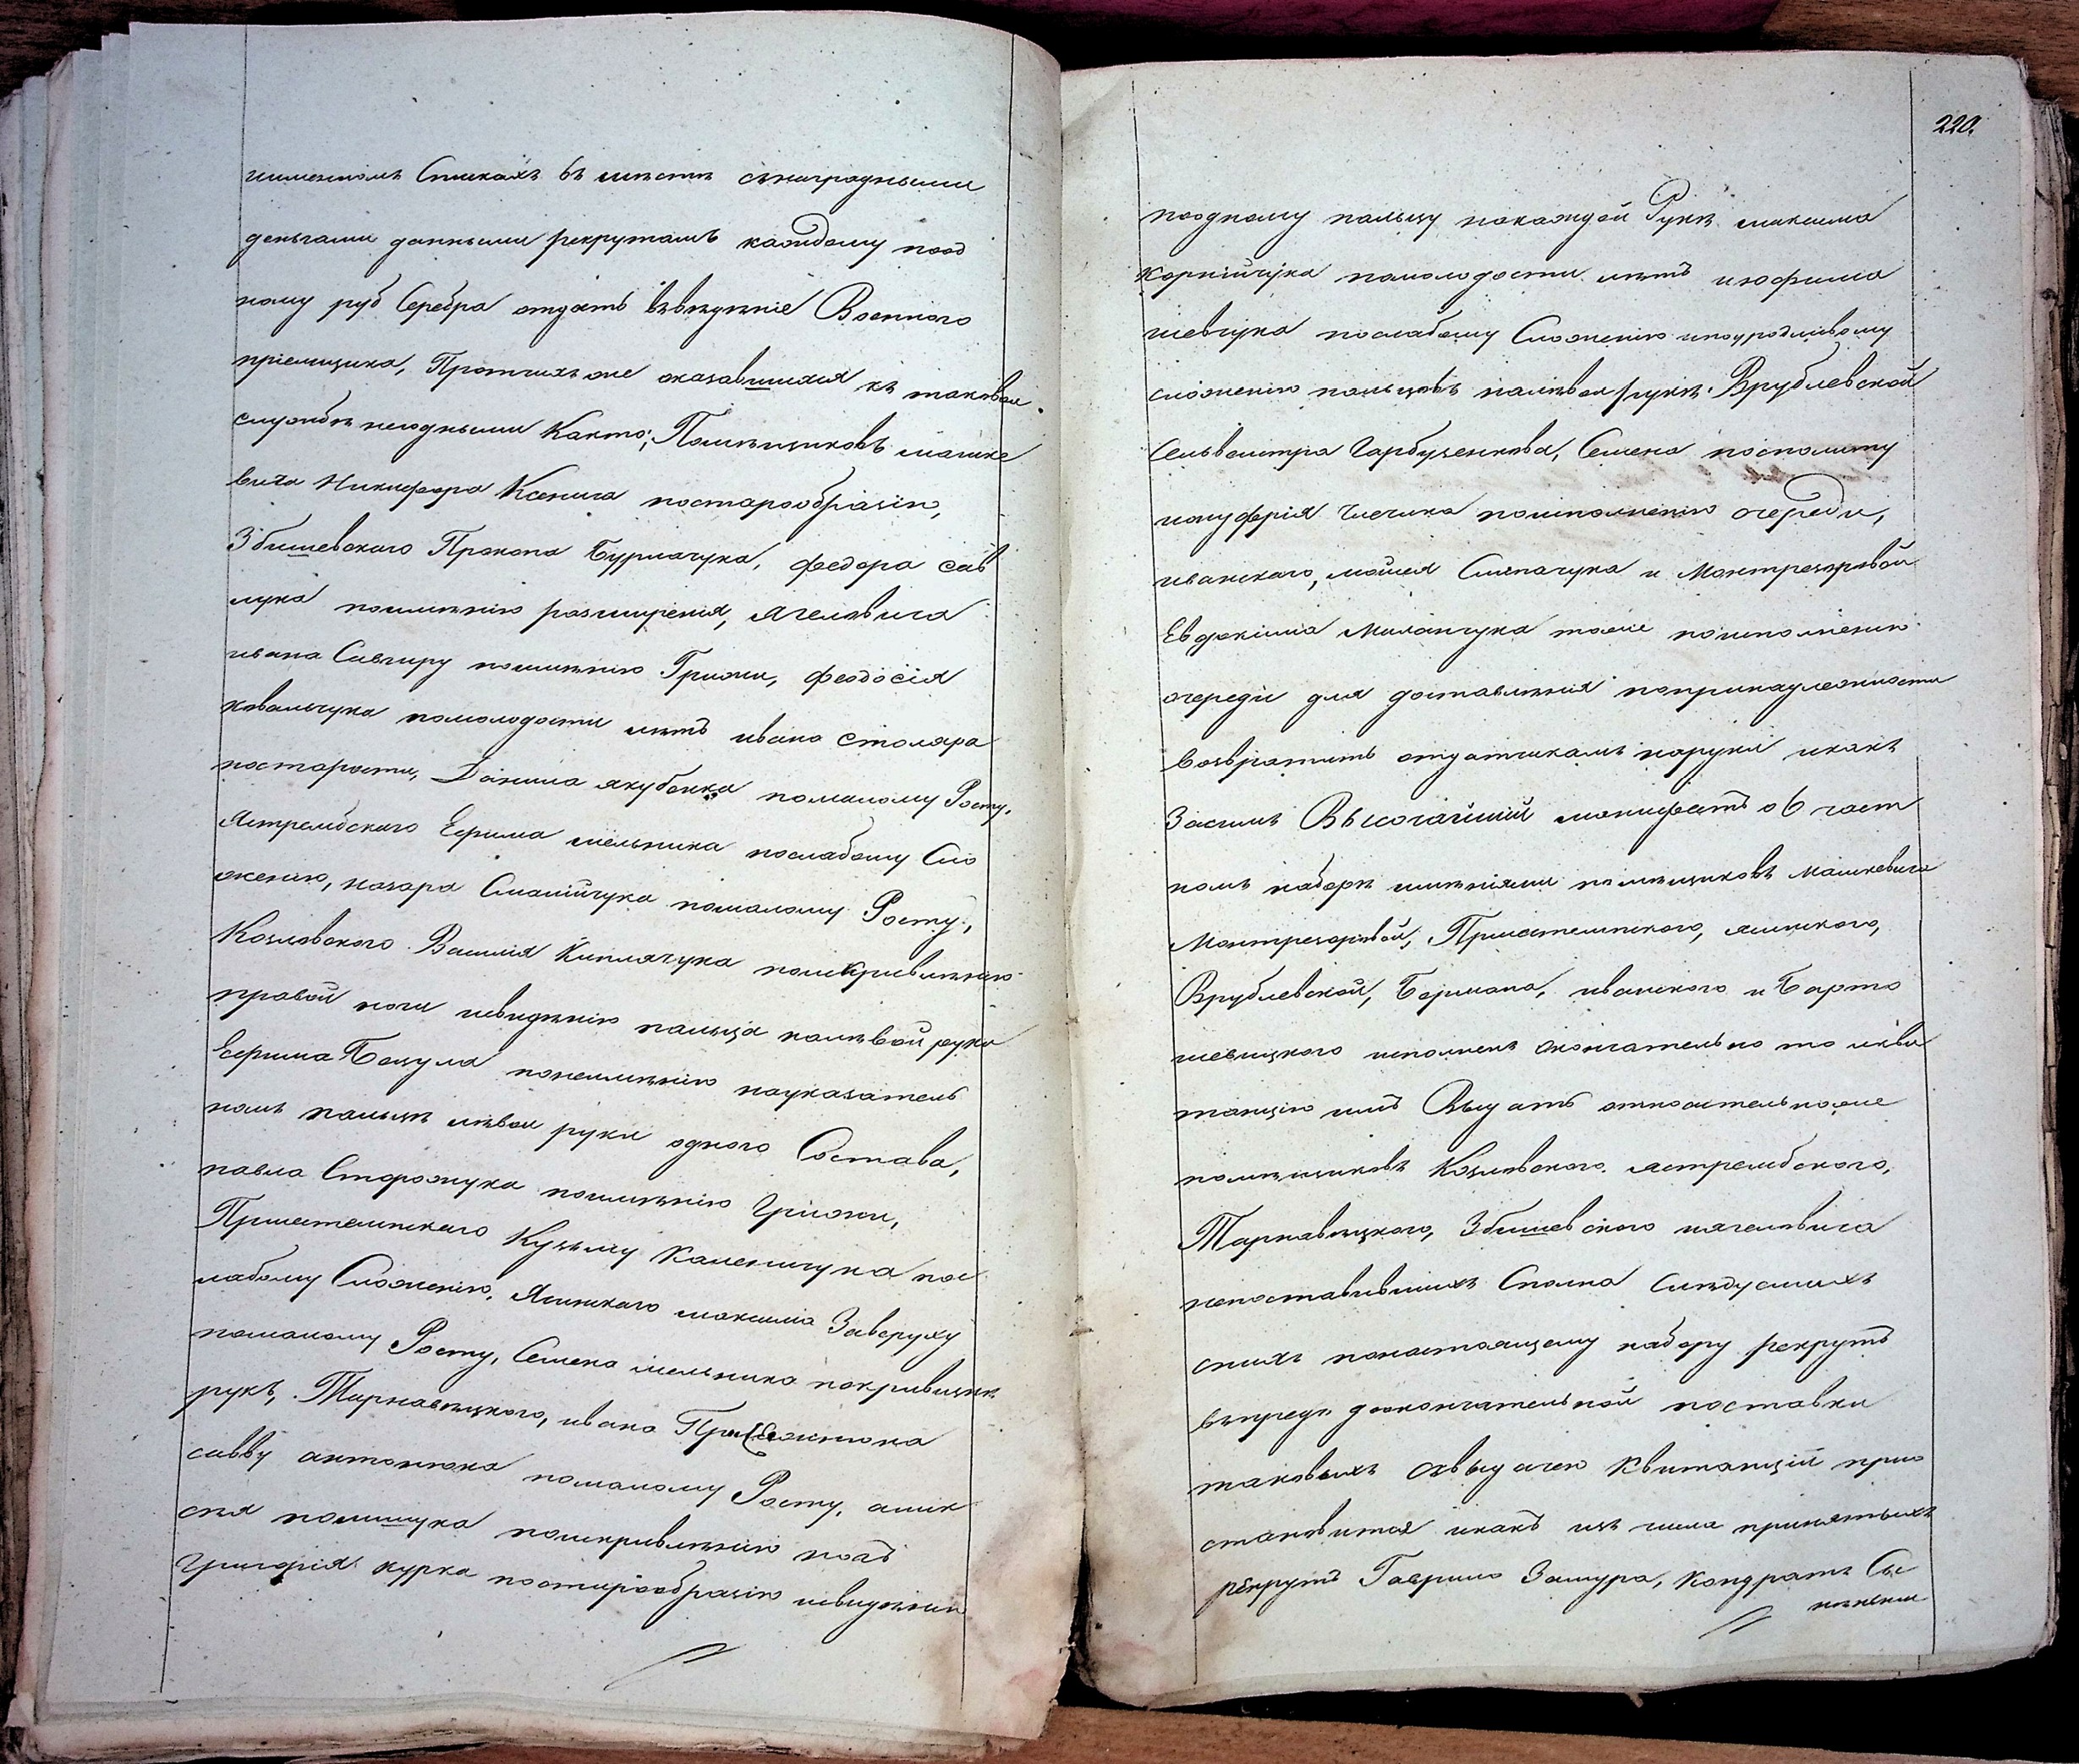 именномъ Спискахъ въ мѣстѣ сънаградными
деньгами данными рекрутамъ каждому поод
ному руб Серебра отдать въвѣдѣніе Военного
пріемщика, Протчихъ же оказавшихся къ таковой
службѣ негодными Както; Помѣщиковъ машке
вича Никифора постарообразію,
Збышевского Прокопа Бурлачука, федора сав
лука поимѣнію разширенія, ячеловича
ивана поимѣнію Грыжи, феодосія
ковальчука помолодости лѣтъ ивана столяра
постарости, Данила якубенка помалому Росту,
Ястрембского Ефима мельника послабому Сло
женію, назара помалому Росту,
Козловского Василія поискривленію
правой ноги исведѣнію пальца налѣвой руки
Ефима понеимѣнію науказатель
номъ пальцѣ лѣвой руки одного Состава,
павла Сторожука поимѣнію Грыжи,
Кузьму Каменчука пос
лабому Сложенію, Ясинского максима Заверуху
помалому Росту, Семена мельника покривизнѣ
рукъ, Тарнавецкого, ивана
савву антонюка помалому Росту, алек
сѣя полищука поискривленію ногъ
Григорія курка постарообразію исведѣнію
220.
поодному пальцу накаждой Рукѣ максима
корнійчука помолодости лѣтъ июфима
шевчука послабому Сложенію ипоуродливому
сложенію пальцовъ налѣвой рукѣ Врублевской
Сильвестра Гарбузенкова, Семена
поисполненію очереди,
иванского, мойсея Слипачука и Монтрезоровой
Евдокима Миланчука тоже поисполненію
очереди для доставленія попринадлежности
возвратить отдатчикамъ наруки икакъ
Засимъ Высочайшій манифестъ о 6 част
номъ наборѣ имѣніями помѣщиковъ машкевича
Монтрезоровой, ясинского,
Врублевской, Бермана, иванского и Барто
шевицкого исполненъ окончательно то икви
танцію имъ Выдать относительноже
помѣщиковъ Козловского ястрембского,
Тарнавецкого, Збышевского иячеловича
непоставившихъ Сполна Слѣдуемыхъ
снихъ понастоящему набору рекрутъ
впредь доокончательной поставки
таковыхъ свыдачею Квитанцій прио
становится икакъ изъ числа принятыхъ
рекрутъ Гаврило Замура, Кондратъ Сы